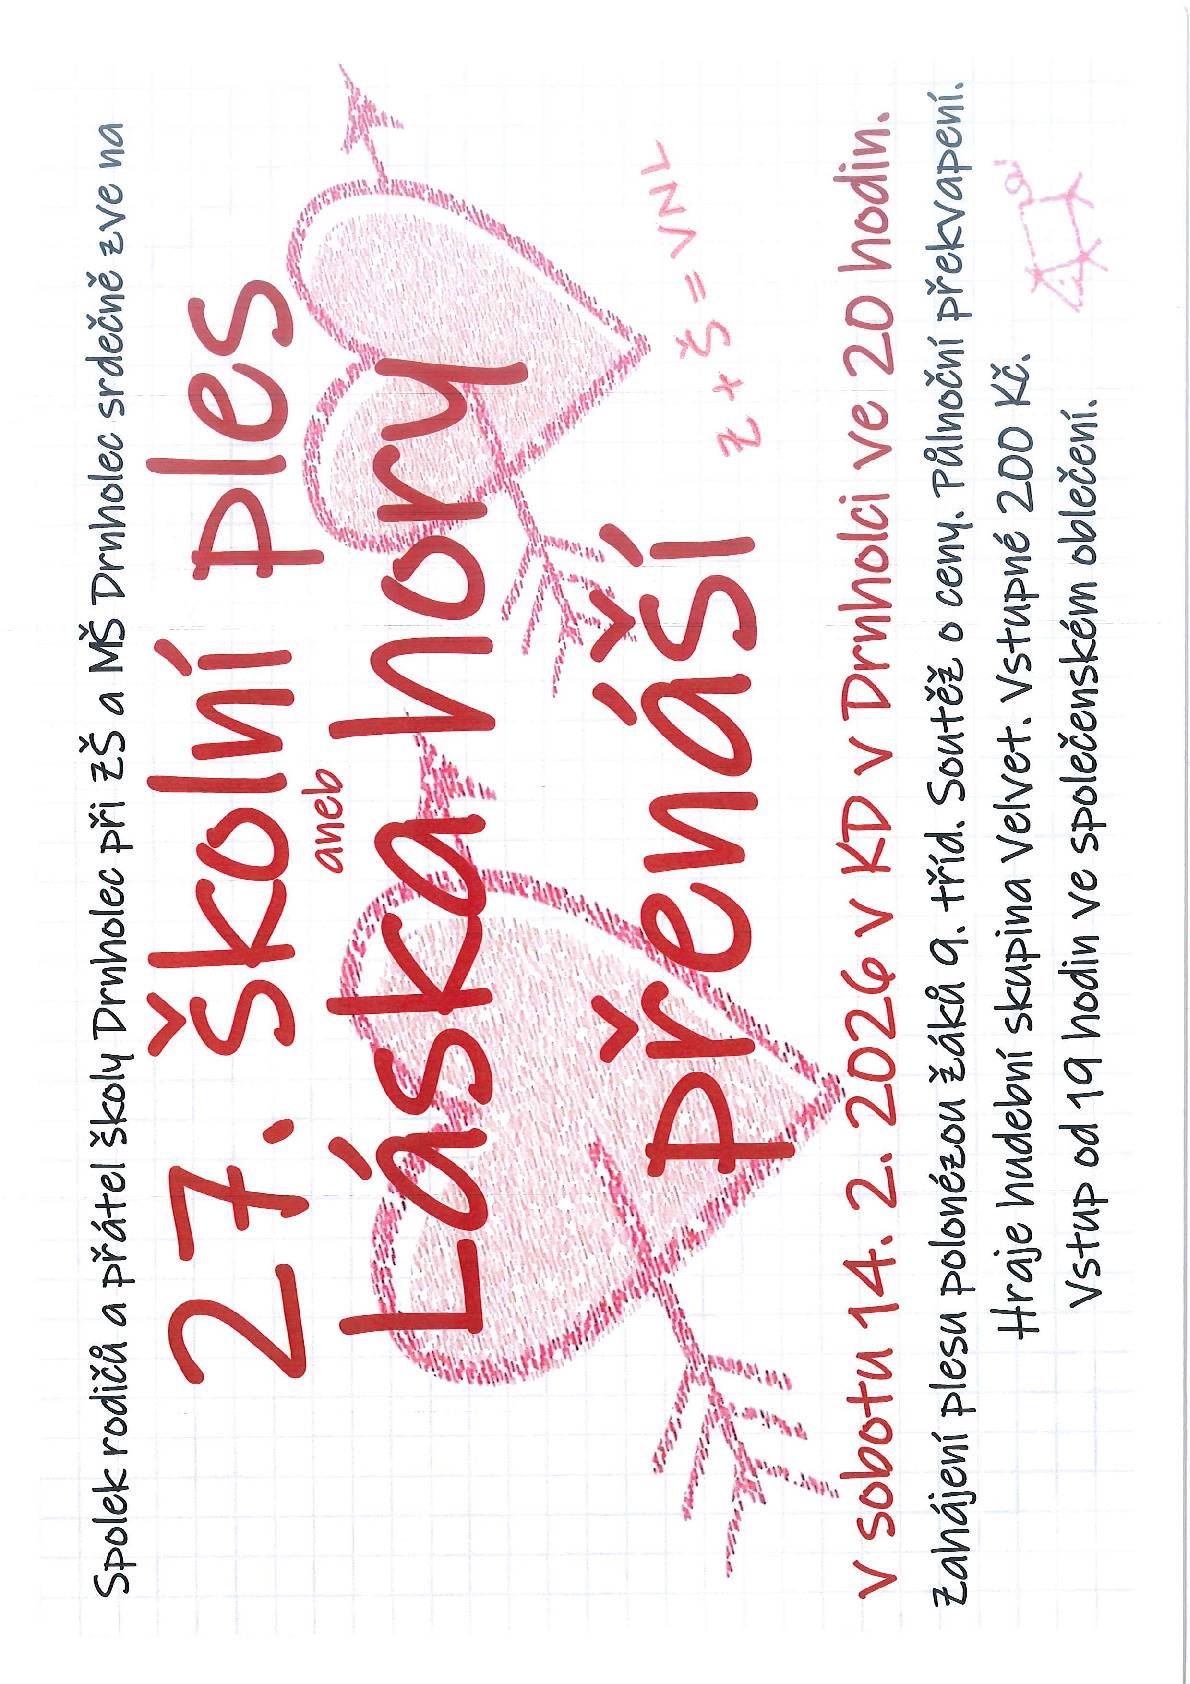 Spolek rodičů a přátel školy Drnholec při ZŠ a MŠ Drnholec srdečně zve na
27. školní ples
aneb
Láska hory
přenáší
Z + Š = VNL
v sobotu 14. 2. 2026 v KD v Drnholci ve 20 hodin.
Zahájení plesu polonézou žáků 9. tříd. Soutěž o ceny. Půlnoční překvapení.
Hraje hudební skupina Velvet. Vstupné 200 Kč.
Vstup od 19 hodin ve společenském oblečení.